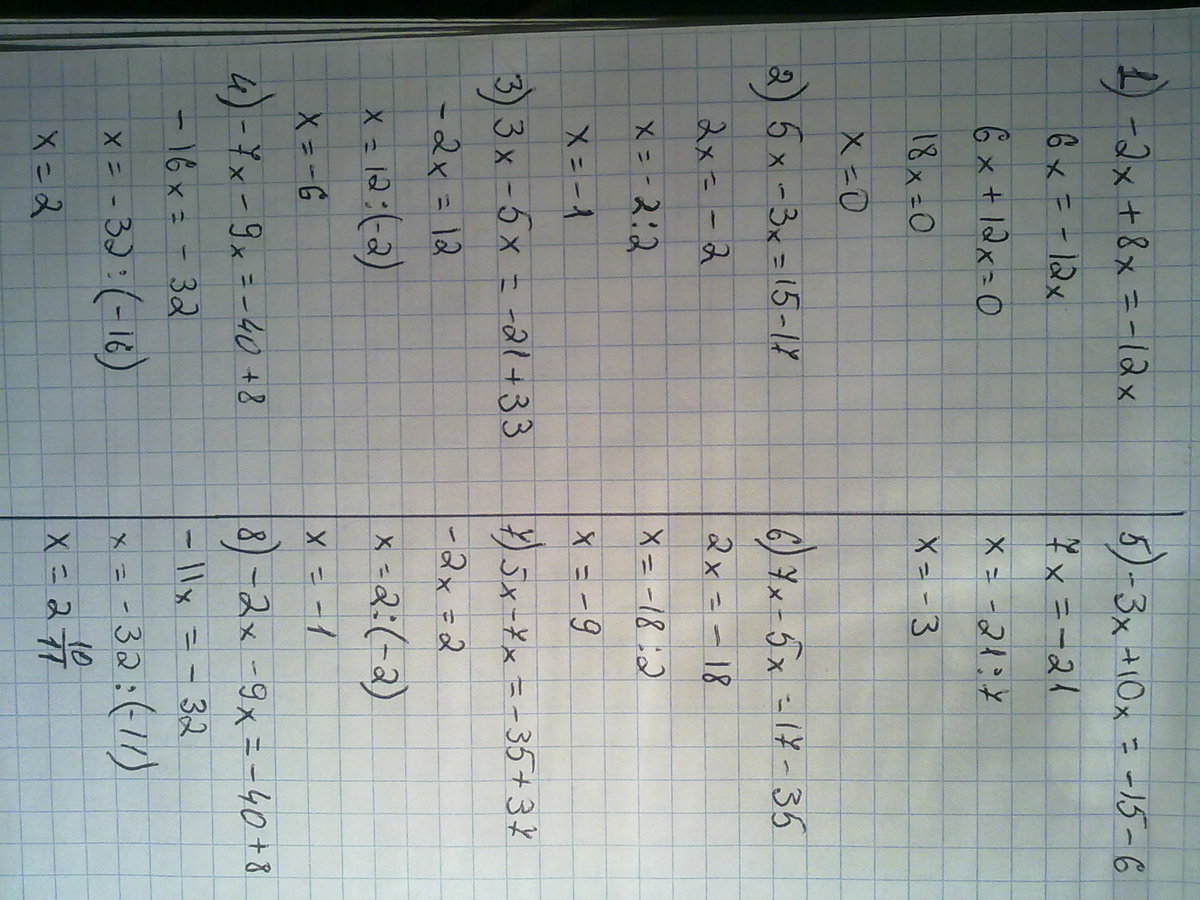 1) -2x + 8x = -12x
6x = -12x
6x + 12x = 0
18x = 0
x = 0
2) 5x - 3x = 15 - 17
2x = -2
x = -2 : 2
x = -1
3) 3x - 5x = -21 + 33
-2x = 12
x = 12 : (-2)
x = -6
4) -7x - 9x = -40 + 8
-16x = -32
x = -32 : (-16)
x = 2
5) -3x + 10x = -15 - 6
7x = -21
x = -21 : 7
x = -3
6) 7x - 5x = 17 - 35
2x = -18
x = -18 : 2
x = -9
7) 5x - 7x = -35 + 37
-2x = 2
x = 2 : (-2)
x = -1
8) -2x - 9x = -40 + 8
-11x = -32
x = -32 : (-11)
x = 2 10/11